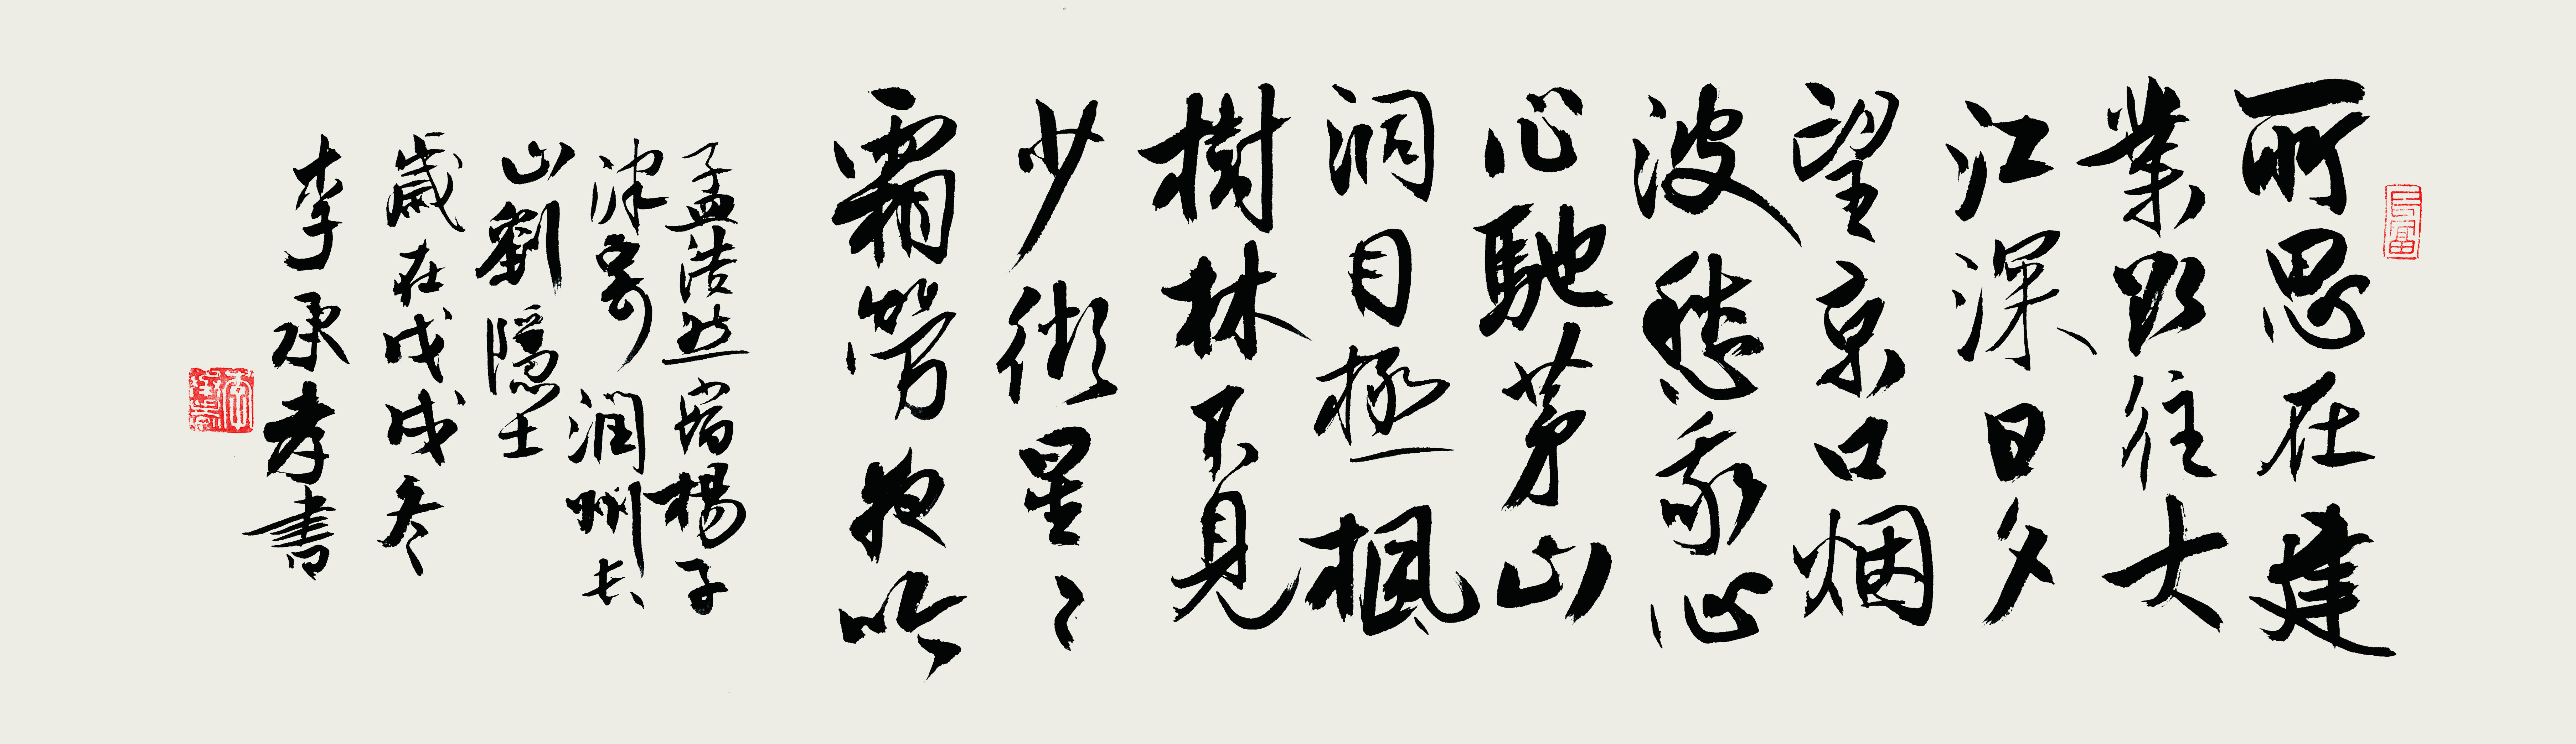 所思在建
業欲往大
江深日夕
望京口烟
波愁我心
心馳茅山
洞目極楓
樹林不見
少微星〻
霜勞夜吟
孟浩然宿楊子
津寄潤州長
山劉隱士
歲在戊戌冬
李承孝書